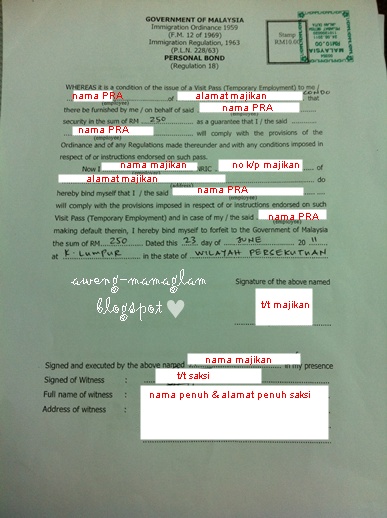 GOVERNMENT OF MALAYSIA
Immigration Ordinance 1959
(F.M. 12 of 1969)
Immigration Regulation, 1963
(P.L.N. 228/63)
PERSONAL BOND
(Regulation 18)
Stamp
RM10.00
RM10.00
WHEREAS it is a condition of the issue of a Visit Pass (Temporary Employment) to me /
nama PRA of alamat majikan CONDO that
(employee) (address)
there be furnished by me / on behalf of said nama PRA
(employee)
security in the sum of RM 250 as a guarantee that I / the said
nama PRA will comply with the provisions of the
(employee)
Ordinance and of any Regulations made thereunder and with any conditions imposed
respect of or instructions endorsed on such pass.
Now I nama majikan NRIC. no k/p majikan of
alamat majikan do
(address)
hereby bind myself that I / the said nama PRA
(employee)
will comply with the provisions imposed in respect of or instructions endorsed on such
Visit Pass (Temporary Employment) and in case of my / the said nama PRA
(employee)
making default therein, I hereby bind myself to forfeit to the Government of Malaysia
the sum of RM 250 Dated this 23 day of JUNE 20 11
at K. LUMPUR in the state of WILAYAH PERSEKUTUAN
aweng-mamaglam
blogspot
Signature of the above named
t/t majikan
Signed and executed by the above named nama majikan in my presence
Signed of Witness : t/t saksi
Full name of witness : nama penuh & alamat penuh saksi
Address of witness :